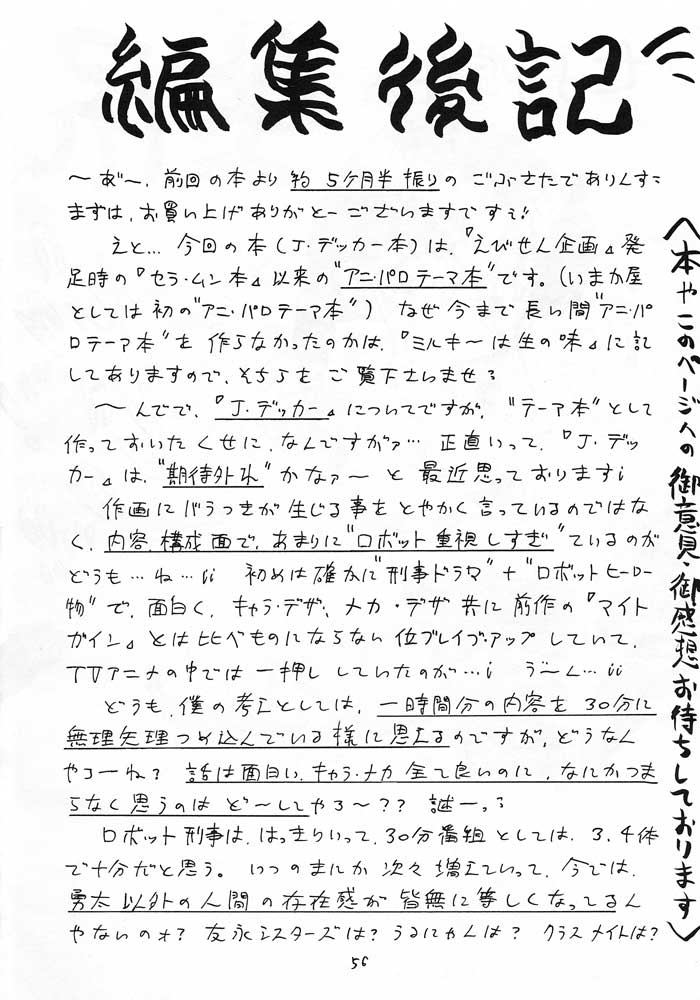 編集後記
〜あ゛〜、前回の本より約5ケ月半振りのごぶさたでありんす
まずは、お買い上げありがとーございますですぅ
えと…今回の本(J・デッカー本)は、『えびせん企画』発
足時の『セラ・ムン本』以来の"アニ・パロテーマ本"です。(いまか屋
としては初の"アニ・パロテーマ本") なぜ今まで長い間"アニ・パ
ロテーマ本"を作らなかったのかは、『ミルキ〜は生の味』に記
してありますので、そちらをご覧下さいませ
〜んでで、『J・デッカー』についてですが、"テーマ本"として
作っておいたくせに、なんですがァ… 正直いって、『J・デッ
カー』は、"期待外れ"かなァ〜と最近思っております
作画にバラつきが生じる事をとやかく言っているのではな
く、内容、構成面で、あまりに"ロボット重視しすぎ"ているのが
どうも…ね… 初めは確かに"刑事ドラマ"+"ロボットヒーロー
物"で、面白く、キャラ・デザ、メカ・デザ共に前作の『マイト
ガイン』とは比べものにならない位ブレイブ・アップしていて、
TVアニメの中では一押ししていたのが… う゛〜ん…
どうも、僕の考えとしては、一時間分の内容を30分に
無理矢理つめ込んでいる様に思えるのですが、どうなん
やろーね? 話は面白い、キャラ・メカ全て良いのに、なにかつま
らなく思うのはど〜してやろ〜?? 謎ーっ
ロボット刑事は、はっきりいって、30分番組としては、3、4体
で十分だと思う。いつのまにか次々増えていって、今では、
勇太以外の人間の存在感が皆無に等しくなってるん
やないのォ? 友永シスターズは? うるにゃんは? クラスメイトは?
56
〈本やこのページへの御意見・御感想お待ちしております〉